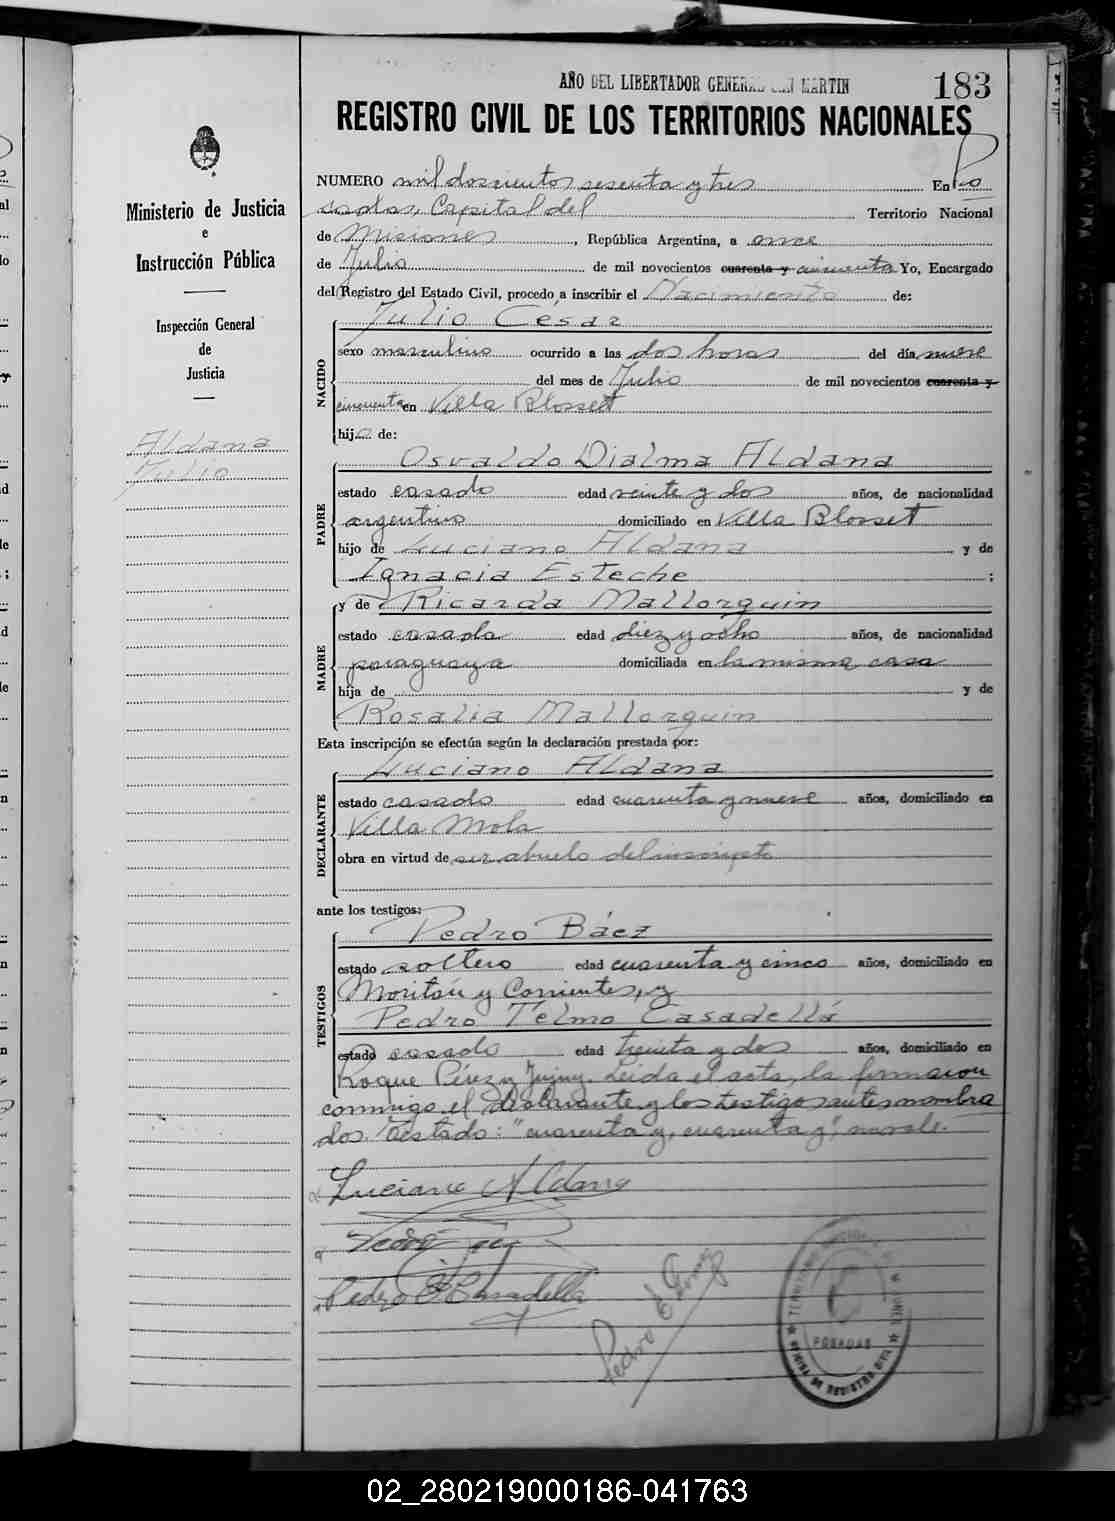 AÑO DEL LIBERTADOR GENERAL SAN MARTIN
183
REGISTRO CIVIL DE LOS TERRITORIOS NACIONALES
Ministerio de Justicia
e
Instrucción Pública
Inspección General
de
Justicia
Aldana
Julio
NUMERO mil doscientos sesenta y tres En Po
sadas, Capital del Territorio Nacional
de Misiones, República Argentina, a once
de Julio de mil novecientos cuarenta y cincuenta Yo, Encargado
del Registro del Estado Civil, procedo a inscribir el Nacimiento de:
NACIDO
Julio César
sexo masculino ocurrido a las dos horas del día nueve
del mes de Julio de mil novecientos cuarenta y
cincuenta en Villa Blosset
hijo de:
PADRE
Osvaldo Dialma Aldana
estado casado edad veinte y dos años, de nacionalidad
argentino domiciliado en Villa Blosset
hijo de Luciano Aldana y de
Ignacia Esteche ;
MADRE
y de Ricarda Mallorquin
estado casada edad diez y ocho años, de nacionalidad
paraguaya domiciliada en la misma casa
hija de y de
Rosalia Mallorquin
Esta inscripción se efectúa según la declaración prestada por:
DECLARANTE
Luciano Aldana
estado casado edad cuarenta y nueve años, domiciliado en
Villa Mola
obra en virtud de ser abuelo del inscripto
ante los testigos:
TESTIGOS
Pedro Báez
estado soltero edad cuarenta y cinco años, domiciliado en
Moritán y Corrientes, y
Pedro Télmo Casadellá
estado casado edad treinta y dos años, domiciliado en
Roque Pérez y Jujuy. Leida el acta, la firmaron
conmigo el declarante y los testigos antes nombra
dos. Testado: "cuarenta y, cuarenta y", no vale.
Luciano Aldana
Pedro
Pedro Casadellá
Pedro Gomez
TERRITORIO MISIONES
POSADAS
OFICINA DE REGISTRO CIVIL
02_280219000186-041763